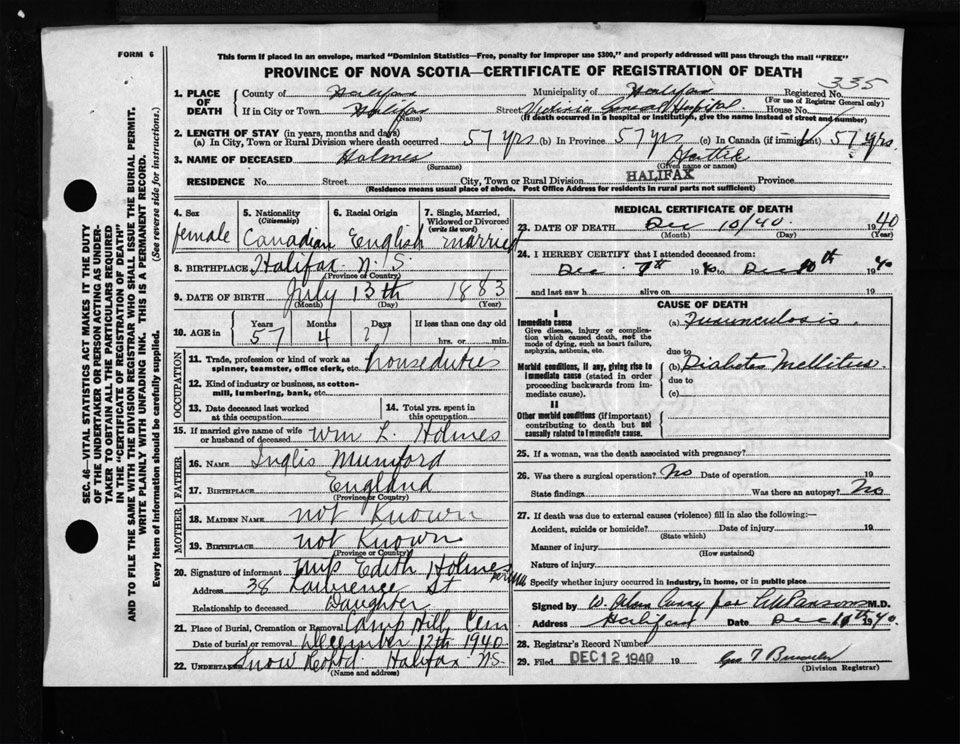 FORM 6
This form if placed in an envelope, marked "Dominion Statistics—Free, penalty for improper use $300," and properly addressed will pass through the mail "FREE"
PROVINCE OF NOVA SCOTIA—CERTIFICATE OF REGISTRATION OF DEATH
335
1. PLACE OF DEATH
County of Halifax Municipality of Halifax Registered No.
(For use of Registrar General only)
If in City or Town Halifax Street Victoria General Hospital House No.
(Name) (If death occurred in a hospital or institution, give the name instead of street and number)
2. LENGTH OF STAY (in years, months and days)
(a) In City, Town or Rural Division where death occurred 57 yrs (b) In Province 57 yrs (c) In Canada (if immigrant) 57 yrs.
3. NAME OF DECEASED Holmes Hattie
(Surname) (Given name or names)
RESIDENCE No. Street City, Town or Rural Division HALIFAX Province
(Residence means usual place of abode. Post Office Address for residents in rural parts not sufficient)
4. Sex female
5. Nationality (Citizenship) Canadian
6. Racial Origin English
7. Single, Married, Widowed or Divorced (write the word) married
8. BIRTHPLACE Halifax N.S.
(Province or Country)
9. DATE OF BIRTH July 13th 1883
(Month) (Day) (Year)
10. AGE in Years Months Days If less than one day old
57 4 27 hrs. or min.
OCCUPATION
11. Trade, profession or kind of work as spinner, teamster, office clerk, etc. housduties
12. Kind of industry or business, as cotton-mill, lumbering, bank, etc.
13. Date deceased last worked at this occupation
14. Total yrs. spent in this occupation
15. If married give name of wife or husband of deceased Wm L. Holmes
FATHER
16. NAME Inglis Mumford
17. BIRTHPLACE England
(Province or Country)
MOTHER
18. MAIDEN NAME not Known
19. BIRTHPLACE not Known
(Province or Country)
20. Signature of informant Mrs Edith Holmes
Address 38 Lawrence St
Relationship to deceased Daughter
21. Place of Burial, Cremation or Removal Camp Hill Cem
Date of burial or removal December 12th 1940
22. UNDERTAKER Snow Halifax NS.
(Name and address)
MEDICAL CERTIFICATE OF DEATH
23. DATE OF DEATH Dec 10/40. 1940
(Month) (Day) (Year)
24. I HEREBY CERTIFY that I attended deceased from:
Dec. 1940 to Dec 10th 1940
and last saw h alive on 19
CAUSE OF DEATH
I
Immediate cause
Give disease, injury or complication which caused death, not the mode of dying, such as heart failure, asphyxia, asthenia, etc.
(a) Furunculosis.
due to
Morbid conditions, if any, giving rise to immediate cause (stated in order proceeding backwards from immediate cause).
(b) Diabetes Mellitus.
due to
(c)
II
Other morbid conditions (if important) contributing to death but not causally related to immediate cause.
25. If a woman, was the death associated with pregnancy?
26. Was there a surgical operation? No Date of operation 19
State findings Was there an autopsy? No
27. If death was due to external causes (violence) fill in also the following:
Accident, suicide or homicide? Date of injury 19
(State which)
Manner of injury
(How sustained)
Nature of injury
Specify whether injury occurred in industry, in home, or in public place
Signed by for Parsons M.D.
Address Halifax Date Dec 1940
28. Registrar's Record Number
29. Filed DEC 12 1940 19
(Division Registrar)
SEC. 46—VITAL STATISTICS ACT MAKES IT THE DUTY
OF THE UNDERTAKER OR PERSON ACTING AS UNDER-
TAKER TO OBTAIN ALL THE PARTICULARS REQUIRED
IN THE "CERTIFICATE OF REGISTRATION OF DEATH"
AND TO FILE THE SAME WITH THE DIVISION REGISTRAR WHO SHALL ISSUE THE BURIAL PERMIT.
WRITE PLAINLY WITH UNFADING INK. THIS IS A PERMANENT RECORD.
Every item of information should be carefully supplied. (See reverse side for instructions.)